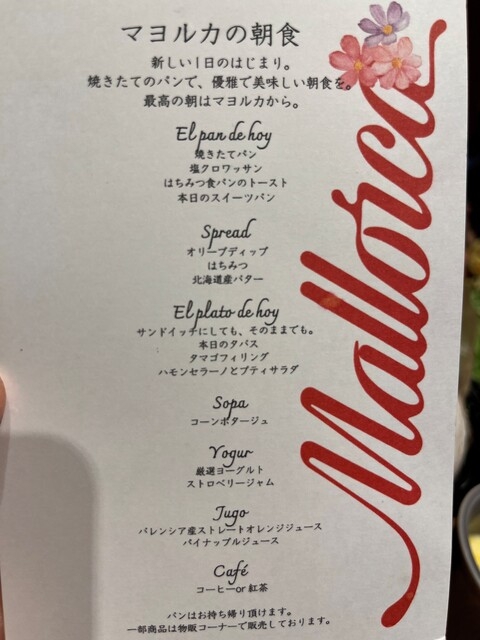 マヨルカの朝食
新しい1日のはじまり。
焼きたてのパンで、優雅で美味しい朝食を。
最高の朝はマヨルカから。
El pan de hoy
焼きたてパン
塩クロワッサン
はちみつ食パンのトースト
本日のスイーツパン
Spread
オリーブディップ
はちみつ
北海道産バター
El plato de hoy
サンドイッチにしても、そのままでも。
本日のタパス
タマゴフィリング
ハモンセラーノとプティサラダ
Sopa
コーンポタージュ
Yogur
厳選ヨーグルト
ストロベリージャム
Jugo
バレンシア産ストレートオレンジジュース
パイナップルジュース
Café
コーヒーor紅茶
パンはお持ち帰り頂けます。
一部商品は物販コーナーで販売しております。
Mallorca